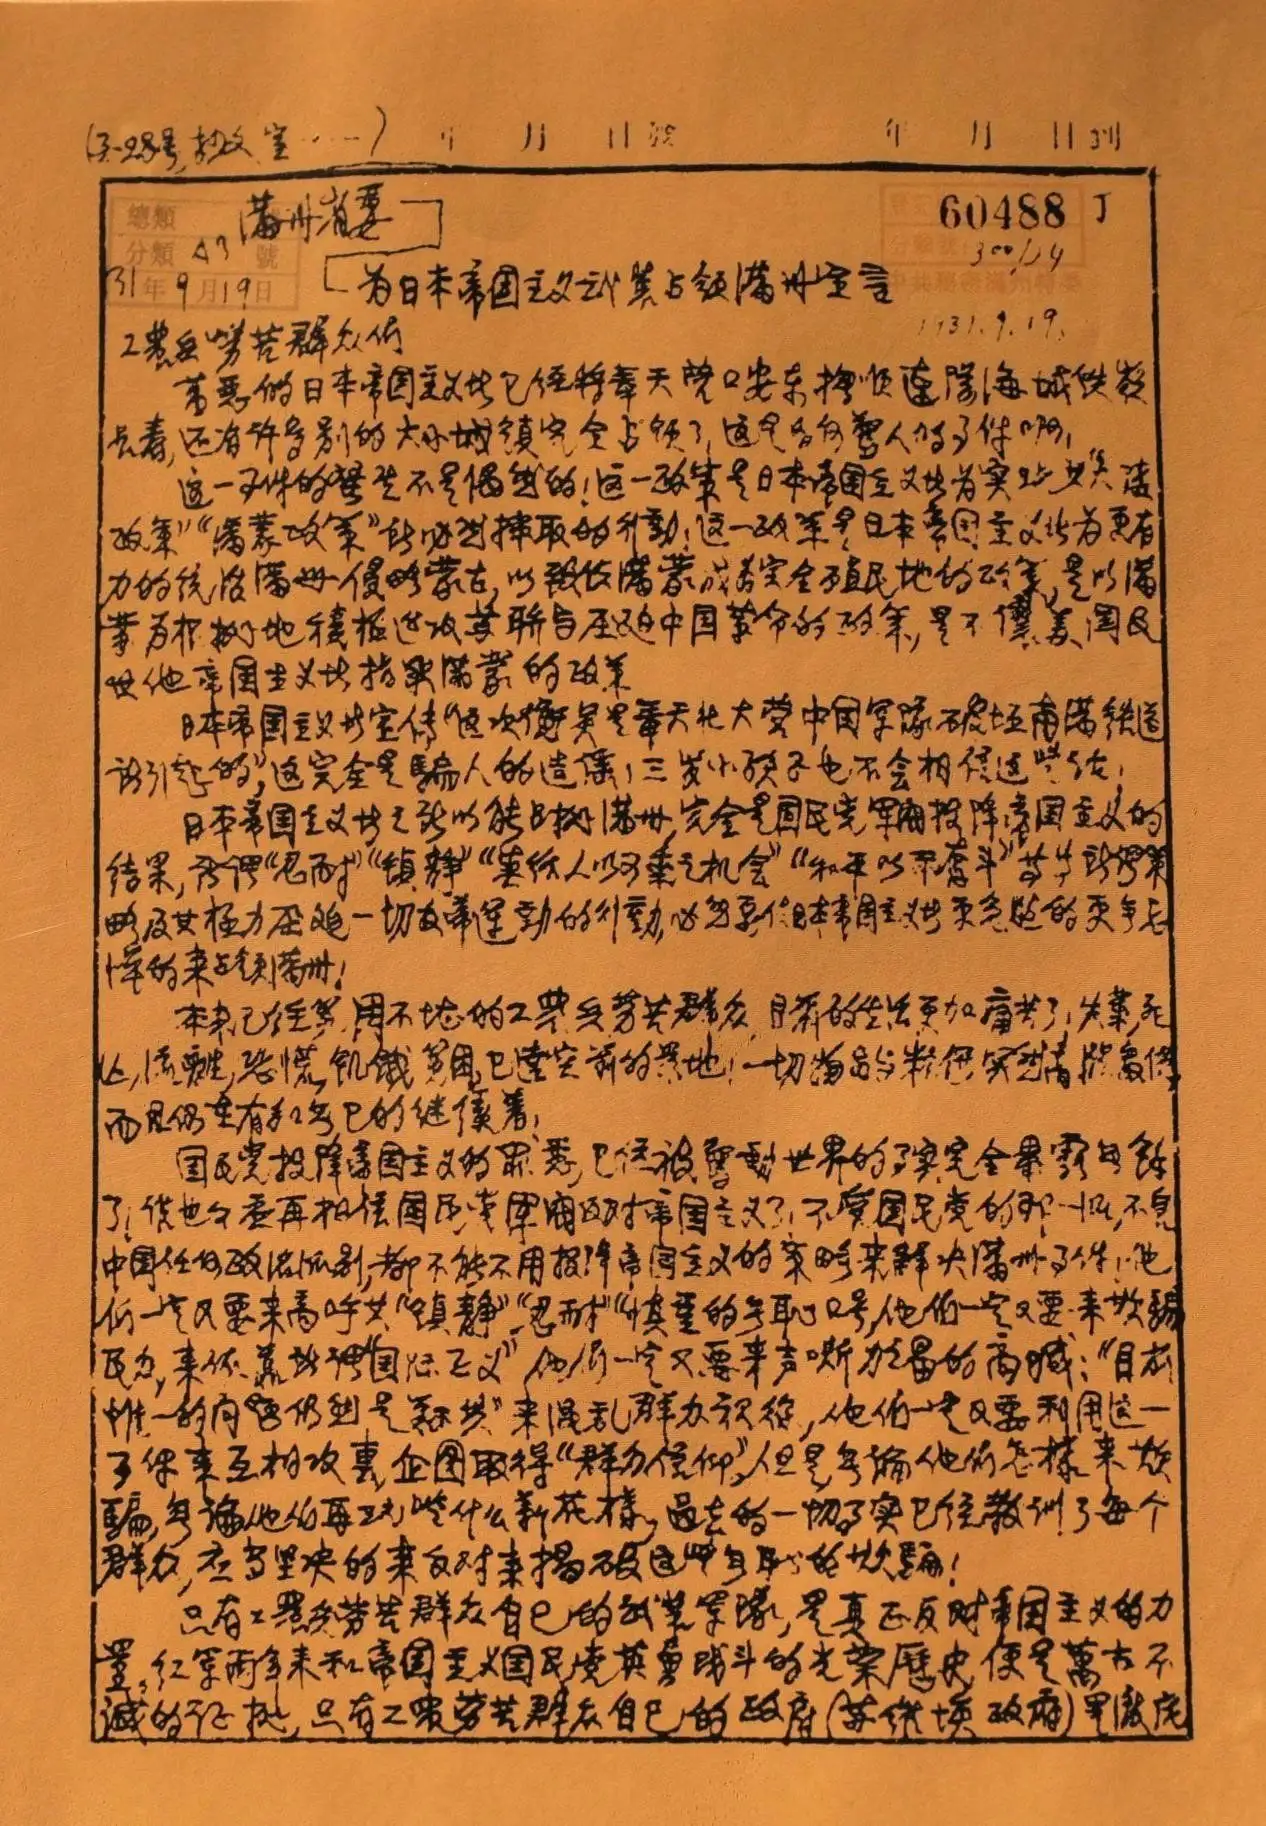 年 月 日 年 月 日到
满州省委
60488 J
總類
分類 A3 號
300/14
31年9月19日
为日本帝国主义武装占领满洲宣言
1931.9.19.
工農兵劳苦群众们
万恶的日本帝国主义者已经将奉天营口安东抚顺辽阳海城铁岭
长春,还有许多别的大小城镇完全占领了,这是如何驚人的事件啊!
这一事件的發生不是偶然的!这一政策是日本帝国主义者为实现
政策”“满蒙政策”所必然採取的行動!这一政策是日本帝国主义者为更有
力的统治满洲侵略蒙古,以致使满蒙成为完全殖民地的政策,是以满
蒙为根据地積極進攻苏联与压迫中国革命的政策,是
其他帝国主义者指染满蒙的政策
日本帝国主义者宣传“这次衝突是奉天北大营中国军隊破坏南满鉄道
所引起的”,这完全是騙人的造謠!三岁小孩子也不会相信这些话!
日本帝国主义者之所以能占据满洲,完全是国民党軍閥投降帝国主义的
结果,所谓“忍耐”“镇静”“莫给人以可乘之机会”“和平以不奋斗”等等
略及其極力压迫一切反帝運動的行動,必然要使日本帝国主义者更急躁的更无忌
惮的来占领满洲!
本来已经苦痛不堪的工農兵劳苦群众,目前的生活更加痛苦了!失業,死
亡,流離,恐慌,飢餓贫困,已達空前的境地!一切
而且仍在有加无已的继续着!
国民党投降帝国主义的罪恶,已经被驚動世界的事实完全暴露无餘
了!谁也不要再相信国民党軍閥反对帝国主义了!不管国民党的那一派,不管
中国任何政治派别,都不能不用投降帝国主义的策略来解决满洲事件!他
们一定又要来高呼其“镇静”“忍耐”“慎重”的无恥口号,他们一定又要来欺騙
民众,来依靠所謂“国际正义”他们一定又要来声嘶力竭的高喊:“目前
惟一的内容仍然是剿共”来混乱群众视线,他们一定又要利用这一
事件来互相攻襲,企图取得“群众信仰”,但是无論他们怎樣来欺
騙,无論他们再玩些什么新花樣,過去的一切事实已经教訓了每个
群众,应当坚决的来反对来揭破这些无恥的欺騙!
只有工農兵劳苦群众自己的武装军隊,是真正反对帝国主义的力
量,红军两年来和帝国主义国民党英勇战斗的光荣歷史,便是萬古不
滅的证據,只有工農劳苦群众自己的政府(苏维埃政府)是澈底